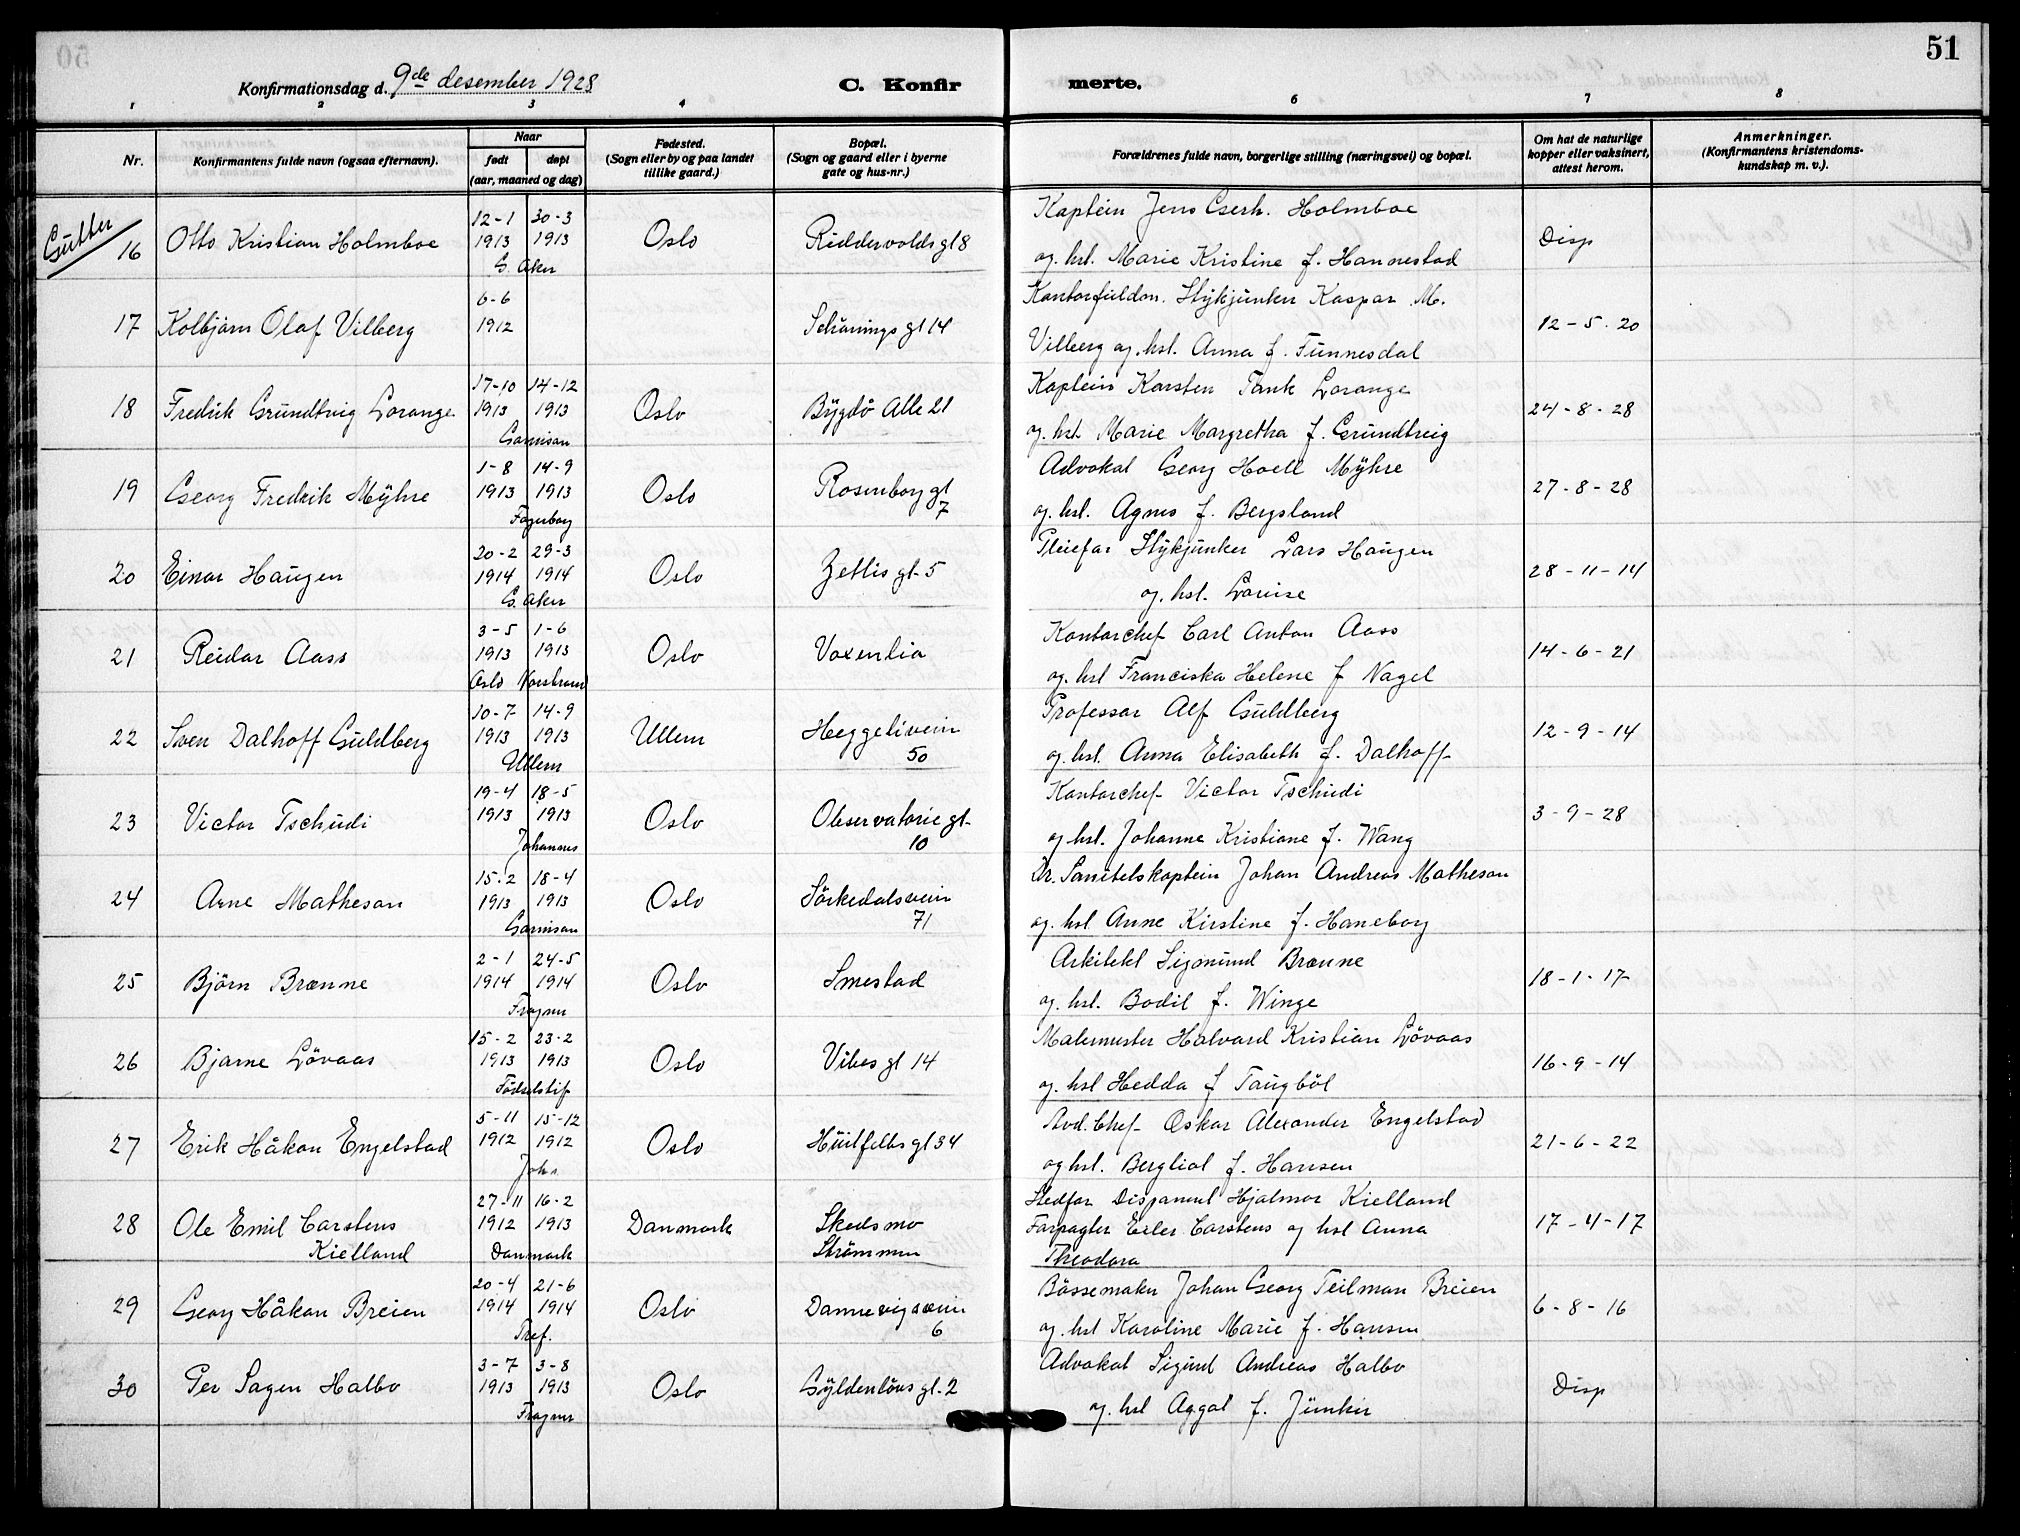 51
Konfirmationsdag d. 9de desember 1928
C. Konfir merte.
1 2 3 4 6 7 8
Nr.
Konfirmantens fulde navn (ogsaa efternavn).
Naar
født døpt
(aar, maaned og dag)
Fødested.
(Sogn eller by og paa landet
tillike gaard.)
Bopæl.
(Sogn og gaard eller i byerne
gate og hus-nr.)
Forældrenes fulde navn, borgerlige stilling (næringsvei) og bopæl.
Om hat de naturlige
kopper eller vaksinert,
attest herom.
Anmerkninger.
(Konfirmantens kristendoms-
kundskap m. v.).
Gutter
16 Otto Kristian Holmboe 12-1 1913 30-3 1913 G. Aker Oslo Riddervoldsgt 8
Kaptein Jens Gerh. Holmboe
og. hst. Marie Kristine f. Hannestad
Disp
17 Kolbjørn Olaf Vilberg 6-6 1912 Schønings gt 14
Stykjunker Kaspar M.
Vilberg og. hst. Anna f. Funnesdal
12-5-20
18 Fredrik Grundtvig Lorange 17-10 1913 14-12 1913 Garnison Oslo Bygdø Alle 21
Kaptein Karsten Tank Lorange
og. hst. Marie Margretha f. Grundtvig
24-8-28
19 Georg Fredrik Myhre 1-8 1913 14-9 1913 Fagerborg Oslo Rosenborg gt 7
Advokat Georg Hoell Myhre
og. hst. Agnes f. Bergsland
27-8-28
20 Einar Haugen 20-2 1914 29-3 1914 G. Aker Oslo Zetlis gt. 5
Pleiefar Stykjunker Lars Haugen
og. hst. Lovise
28-11-14
21 Reidar Aass 3-5 1913 1-6 1913 Oslo Oslo Voxenlia
Kontorchef Carl Anton Aass
og. hst Franciska Helene f Nagel
14-6-21
22 Sven Dalhoff Guldberg 10-7 1913 14-9 1913 Ullern Ullern Heggelivein 50
Professor Alf Guldberg
og. hst. Anna Elisabeth f. Dalhoff
12-9-14
23 Victor Tschudi 19-4 1913 18-5 1913 Johannes Oslo Observatorie gt. 10
Kontorchef Victor Tschudi
og hst. Johanne Kristiane f. Wang
3-9-28
24 Arne Matheson 15-2 1913 18-4 1913 Garnison Oslo Sørkedalsvein 71
Dr. Sanitetskaptein Johan Andreas Matheson
og. hst Anne Kirstine f. Haneborg
25 Bjørn Brænne 2-1 1914 24-5 1914 Frogner Oslo Smestad
Arkitekt Sigmund Brænne
og. hst. Bodil f. Winge
18-1-17
26 Bjarne Løvaas 15-2 1913 23-2 1913 Fødselstif Oslo Vibes gt 14
Malermester Halvard Kristian Løvaas
og. hst Hedda f Taugbøl
16-9-14
27 Erik Håkon Engelstad 5-11 1912 15-12 1912 Johs. Oslo Huitfelts gt 34
Avd. Chef Oskar Alexander Engelstad
og hst. Bergliot f. Hansen
21-6-22
28 Ole Emil Carstens Kielland 27-11 1912 16-2 1913 Danmark Danmark Skedsmo Strømmen
Stedfar Disponent Hjalmar Kielland
Forpagter Eiler Carstens og hst Anna
Theodora
17-4-17
29 Georg Håkon Breien 20-4 1914 21-6 1914 Tref. Oslo Dannevigsvein 6
Bøssemaker Johan Georg Teilman Breien
og. hst Karoline Marie f. Hansen
6-8-16
30 Per Sagen Halbo 3-7 1913 3-8 1913 Frogner Oslo Gyldenløves gt. 2
Advokat Sigurd Andreas Halbo
og. hst Aggot f. Junker
Disp